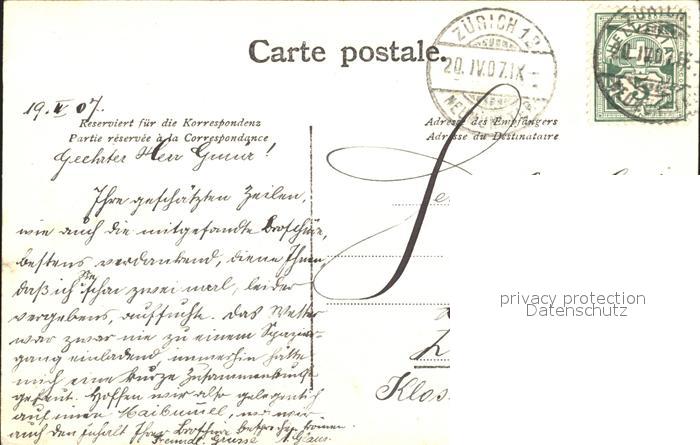 Carte postale.
ZÜRICH 12
20. IV. 07. IX
HELVETIA
5
19. IV 07.
Reserviert für die Korrespondenz
Partie réservée à la Correspondance
Adresse des Empfängers
Adresse du Destinataire
Geehrter Herr
Ihre geschätzten Zeilen,
wie auch die mitgesandte Broschüre,
bestens verdankend, diene Ihnen
daß ich Sie schon zwei mal, leider
vergebens, aufsuchte. Das Wetter
war zwar nie zu einem Spazier-
gang einladend, immerhin hätte
mich eine kurze Zusammenkunft
gefreut. Hoffen wir also gelegentlich
auf einen Maibummel, wo wir
auch den Inhalt Ihrer Broschüre besprechen können.
Freundl. Grüsse
Klos
privacy protection
Datenschutz